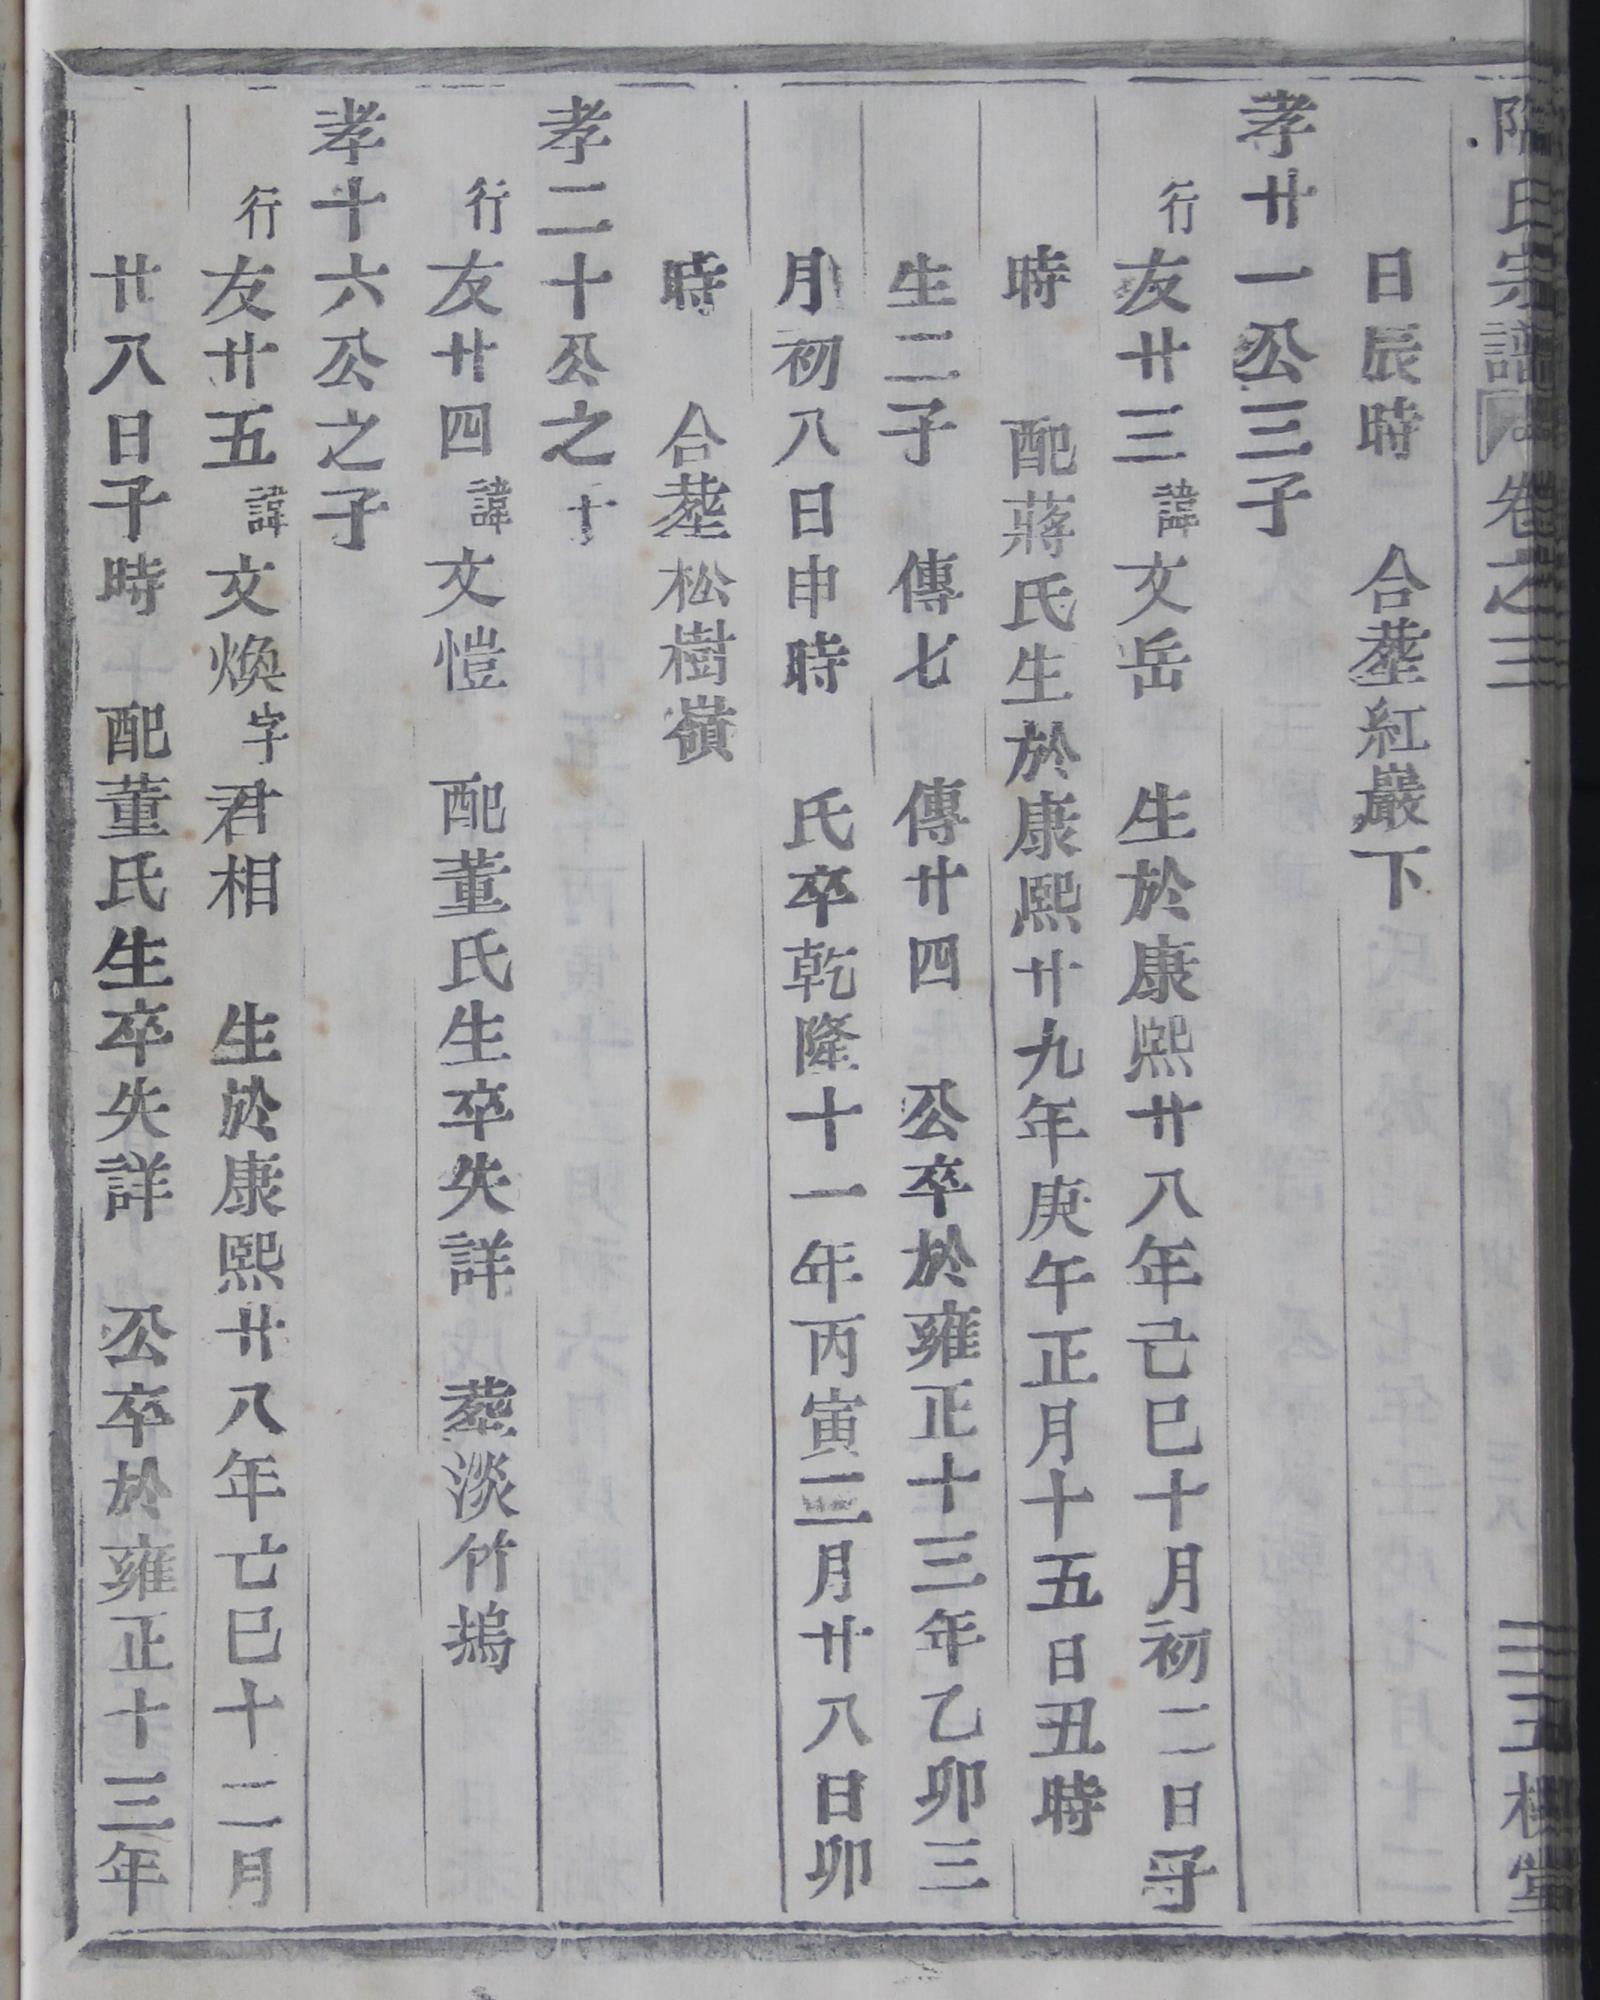 氏宗譜 卷之三 三五樓堂
日辰時 合塟紅巖下
孝廿一公三子
行友廿三諱文岳 生於康熙廿八年己巳十月初二日守
時 配蔣氏生於康熙廿九年庚午正月十五日丑時
生二子 傳七 傳廿四 公卒於雍正十三年乙卯三
月初八日申時 氏卒乾隆十一年丙寅三月廿八日卯
時 合塟松樹嶺
孝二十公之十
行友廿四諱文愷 配董氏生卒失詳 塟淡竹塢
孝十六公之子
行友廿五諱文煥字君相 生於康熙廿八年亡巳十二月
廿八日子時 配董氏生卒失詳 公卒於雍正十三年